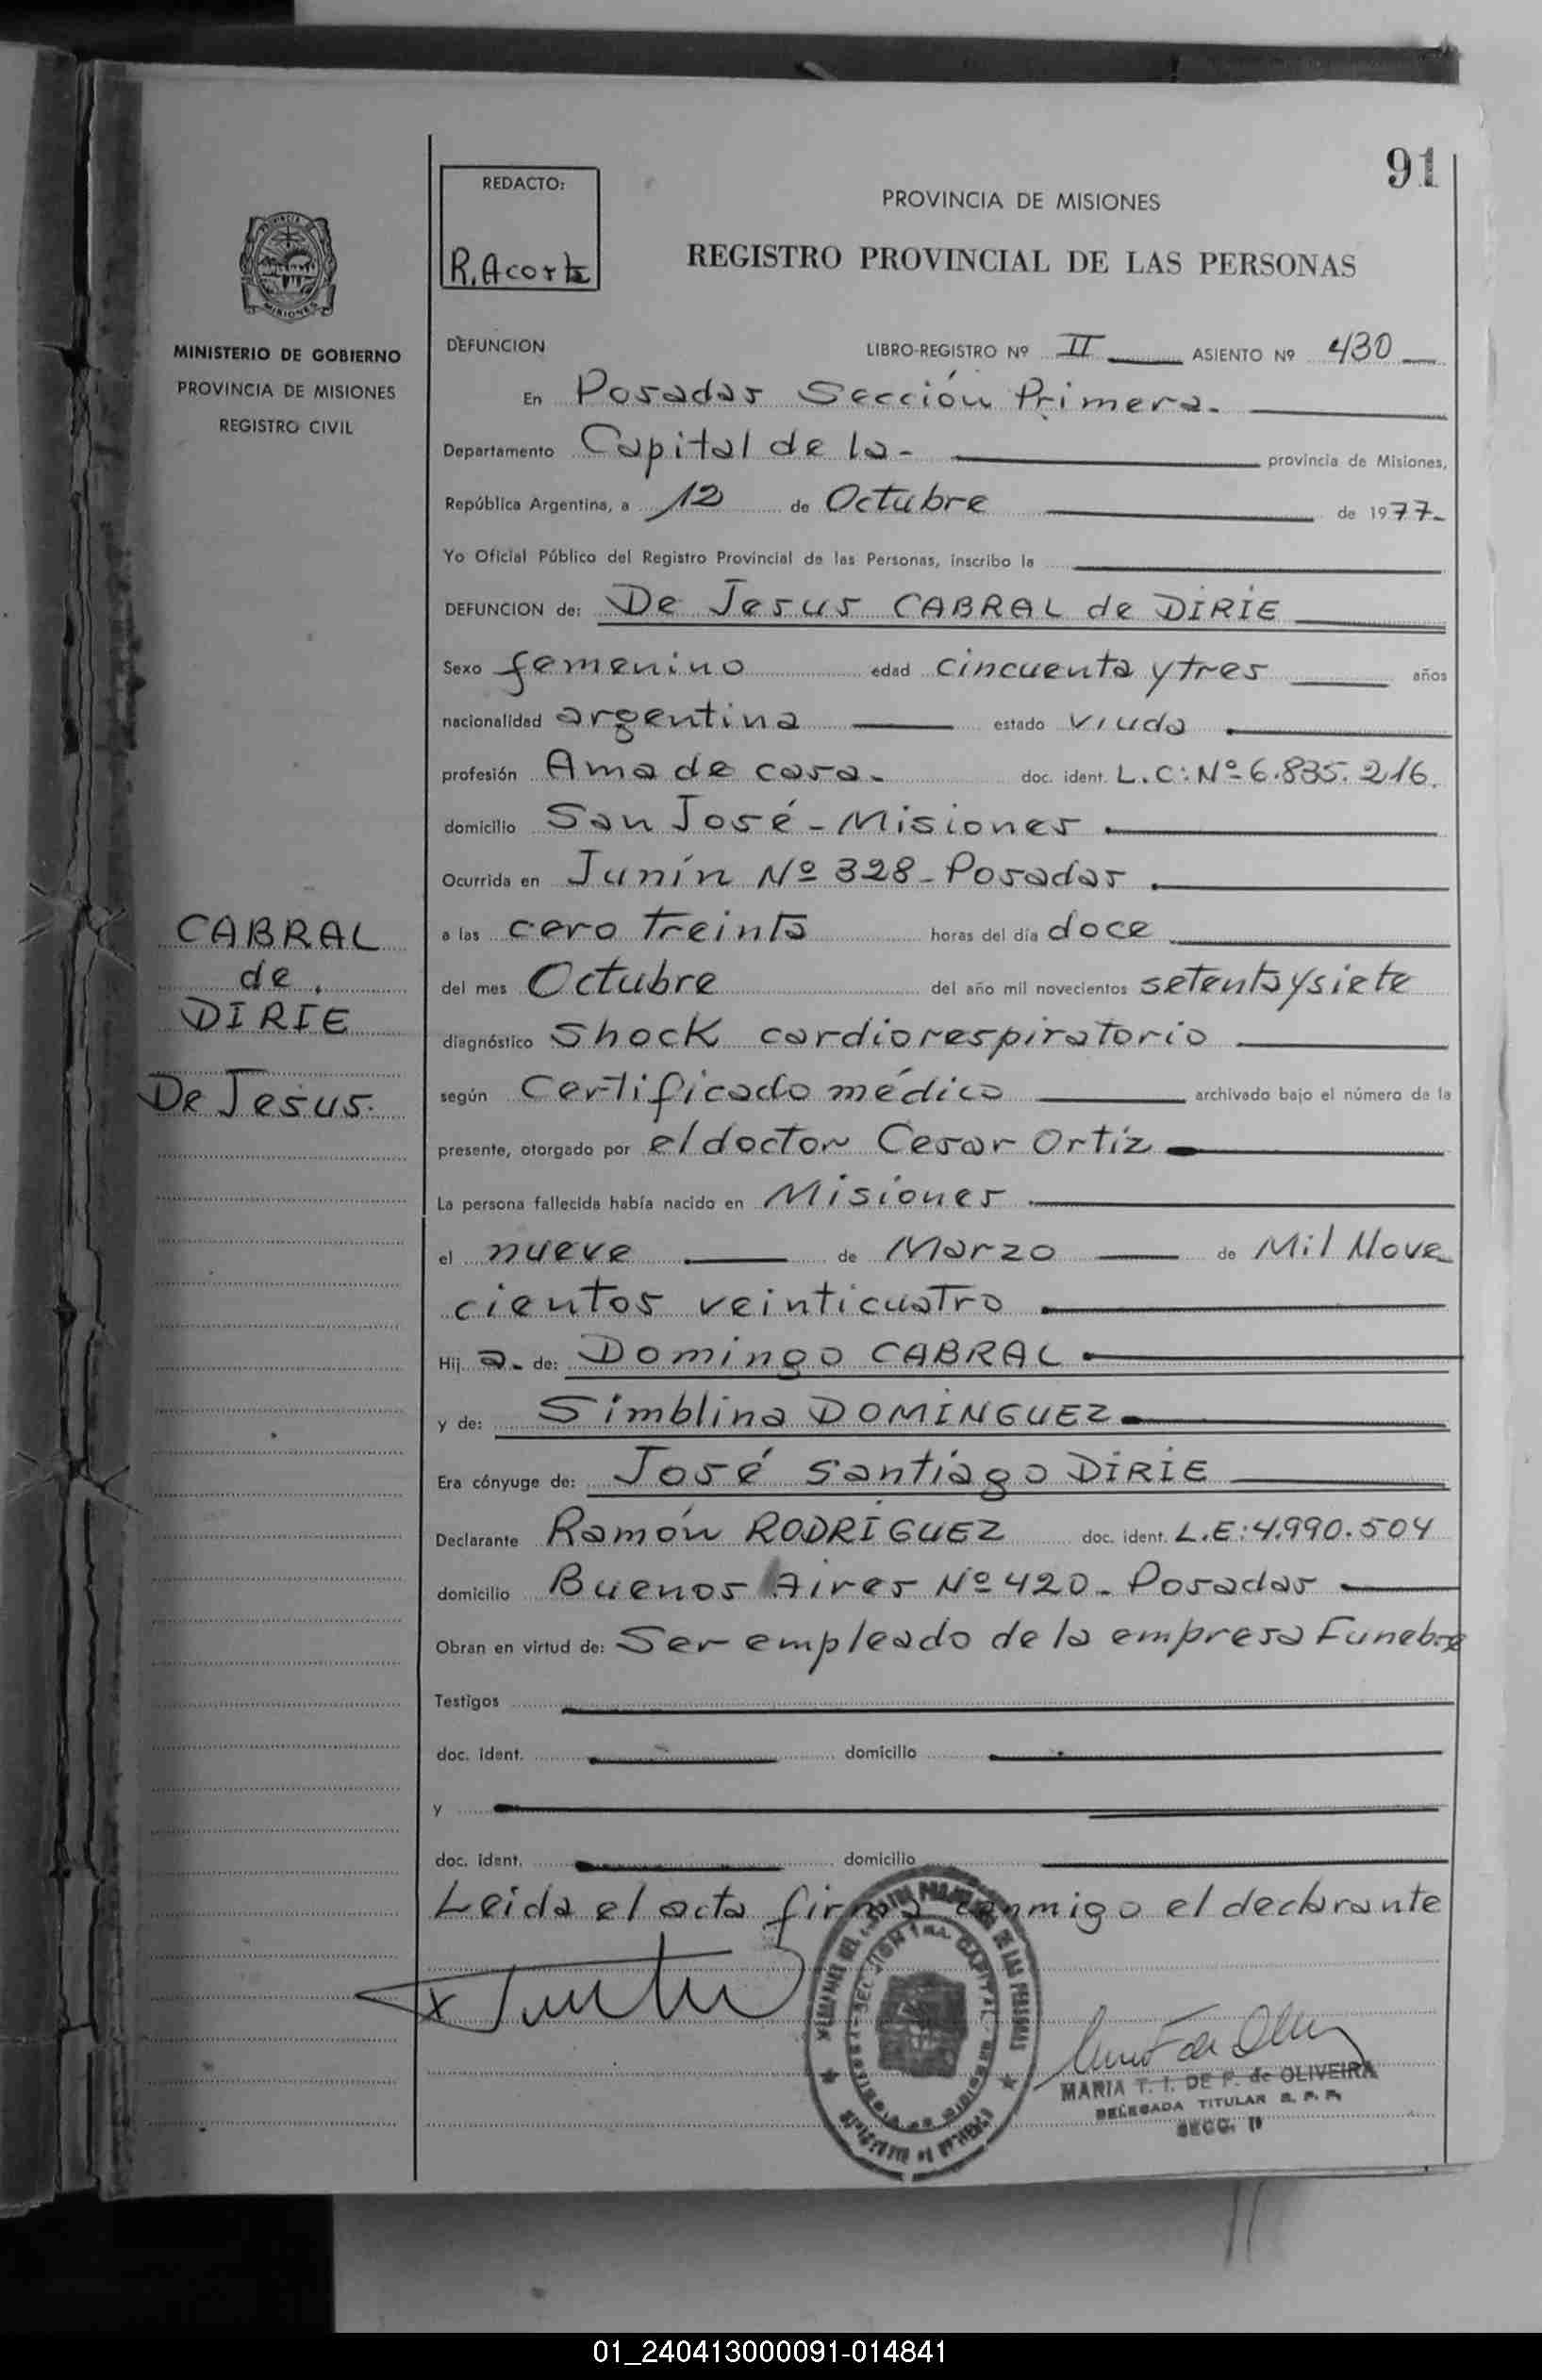 91
REDACTO:
R. Acorta
PROVINCIA DE MISIONES
REGISTRO PROVINCIAL DE LAS PERSONAS
MINISTERIO DE GOBIERNO
PROVINCIA DE MISIONES
REGISTRO CIVIL
DEFUNCION LIBRO-REGISTRO Nº II ASIENTO Nº 430
En Posadas Sección Primera.
Departamento Capital de la- provincia de Misiones,
República Argentina, a 12 de Octubre de 1977-
Yo Oficial Público del Registro Provincial de las Personas, inscribo la
DEFUNCION de: De Jesus CABRAL de DIRIE
Sexo femenino edad cincuenta y tres años
nacionalidad argentina estado viuda
profesión Ama de casa- doc. ident. L.C: Nº 6.835.216.
domicilio San José - Misiones
Ocurrida en Junín Nº 328- Posadas
a las cero treinta horas del día doce
del mes Octubre del año mil novecientos setenta y siete
diagnóstico Shock cardiorespiratorio
según Certificado médico archivado bajo el número de la
presente, otorgado por el doctor Cesar Ortíz
La persona fallecida había nacido en Misiones
el nueve de Marzo de Mil Nove
cientos veinticuatro
Hij a- de: Domingo CABRAL
y de: Simblina DOMINGUEZ
Era cónyuge de: José Santiago DIRIE
Declarante Ramón RODRIGUEZ doc. ident. L.E: 4.990.504
domicilio Buenos Aires Nº 420- Posadas
Obran en virtud de: Ser empleado de la empresa Funebre
Testigos
doc. ident. domicilio
y
doc. ident. domicilio
Leida el acta firma conmigo el declarante
CABRAL
de
DIRIE
De Jesus.
MARIA T. I. DE P. de OLIVEIRA
DELEGADA TITULAR R. P. P.
SECC.
01_240413000091-014841